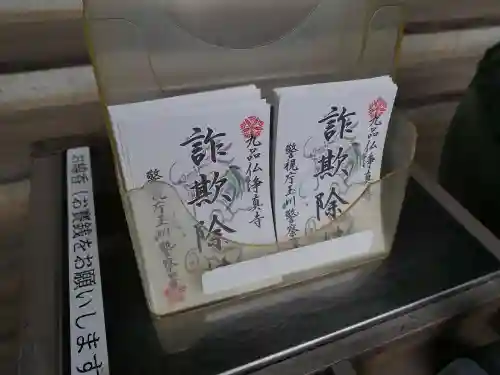 九品仏浄真寺
詐欺除
警視庁玉川警察署
九品仏浄真寺
詐欺除
警視庁玉川警察
(お賽銭をお願いします